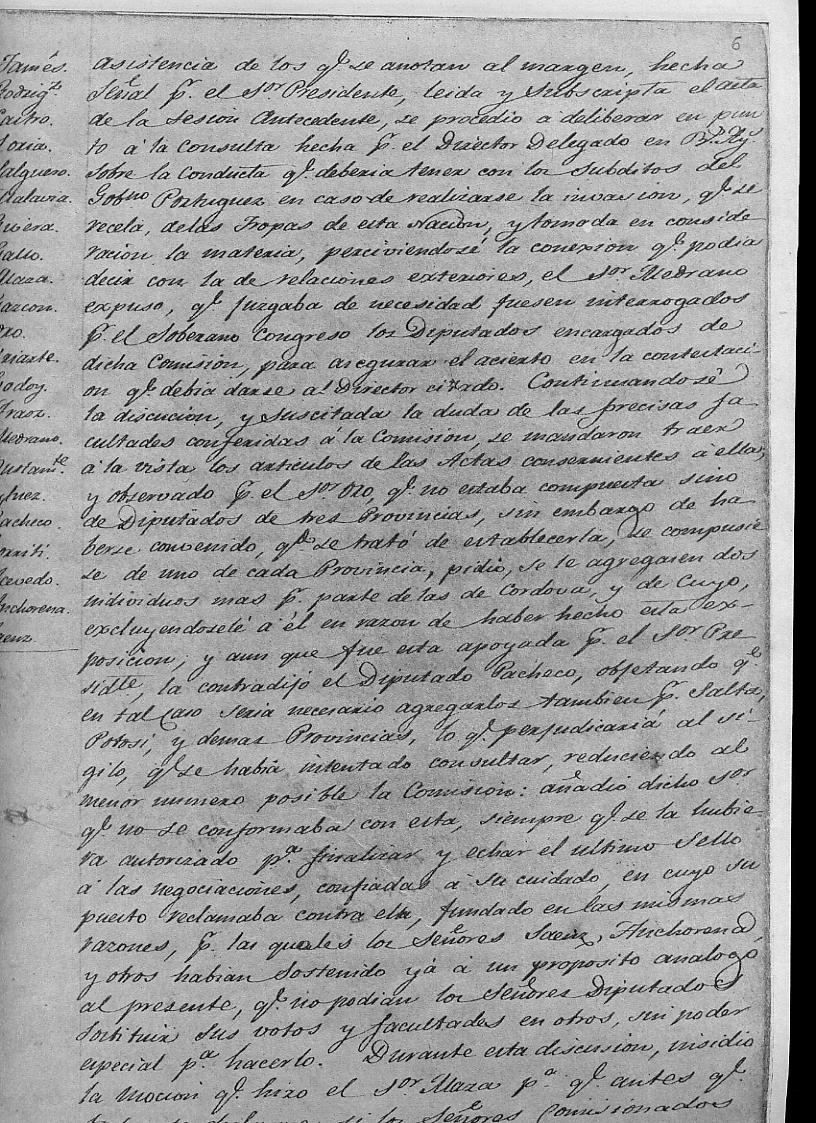 6
Jamés.
Rodrig.z
Castro.
Loria.
Salguero.
Malavia.
Rivera.
Gallo.
Maza.
Gascon.
Oro.
Uriarte.
Godoy.
Aráoz.
Medrano.
Bustam.te
Pacheco
Gorriti.
Acevedo.
Anchorena.
Saenz.
asistencia de los q.e se anotan al margen, hecha
Señal p.r el S.or Presidente, leida y subscripta el acta
de la Sesion Antecedente, se procedio a deliberar en pun
to à la consulta hecha p.r el Director Delegado en B.s Ay.s
sobre la Conducta q.e deberia tener con los subditos del
Gob.no Portuguez en caso de realizarse la invasion, q.e se
recela, delas Tropas de esta Nacion, y tomada en conside
racion la materia, perciviendosé la conexion q.e podia
decir con la de relaciones exteriores, el S.or Medrano
expuso, q.e juzgaba de necesidad fuesen interrogados
p.r el Soberano Congreso los Diputados encargados de
dicha Comision, para asegurar el acierto en la contestaci-
on q.e debia darse al Director citado. Continuandosé
la discucion, y suscitada la duda de las precisas fa
cultades conferidas á la Comision, se mandaron traer
á la vista los articulos de las Actas consernientes á ella;
y observado p.r el S.or Oro, q.e no estaba compuesta sino
de Diputados de tres Provincias, sin embargo de ha
berse convenido, q.do se trató de establecerla, se compusie
se de uno de cada Provincia, pidio, se le agregasen dos
individuos mas p.r parte de las de Cordova, y de Cuyo,
excluyendoselé á él en razon de haber hecho esta ex-
posicion; y aun que fue esta apoyada p.r el S.or Pre
sid.te, la contradijó el Diputado Pacheco, objetando q.e
en tal caso seria necesario agregarlos tambien p.r Salta,
Potosi, y demas Provincias, lo q.e perjudicaria al si-
gilo, q.e se habia intentado consultar, reduciendo al
menor numero posible la Comision: añadio dicho S.or
q.e no se conformaba con esta, siempre q.e se la hubie-
ra autorizado p.a finalizar y echar el ultimo sello
á las negociaciones, confiadas á su cuidado, en cuyo su
puesto reclamaba contra ella, fundado en las mismas
razones, p.r las quales los Señores Saenz, Anchorena,
y otros habian sostenido yá á un proposito analogo
al presente, q.e no podian los Señores Diputados
sostituir sus votos y facultades en otros, sin poder
especial p.a hacerlo. Durante esta discusion, insidio
la mocion q.e hizo el S.or Maza p.a q.e antes q.e
si los Señores Comisionados